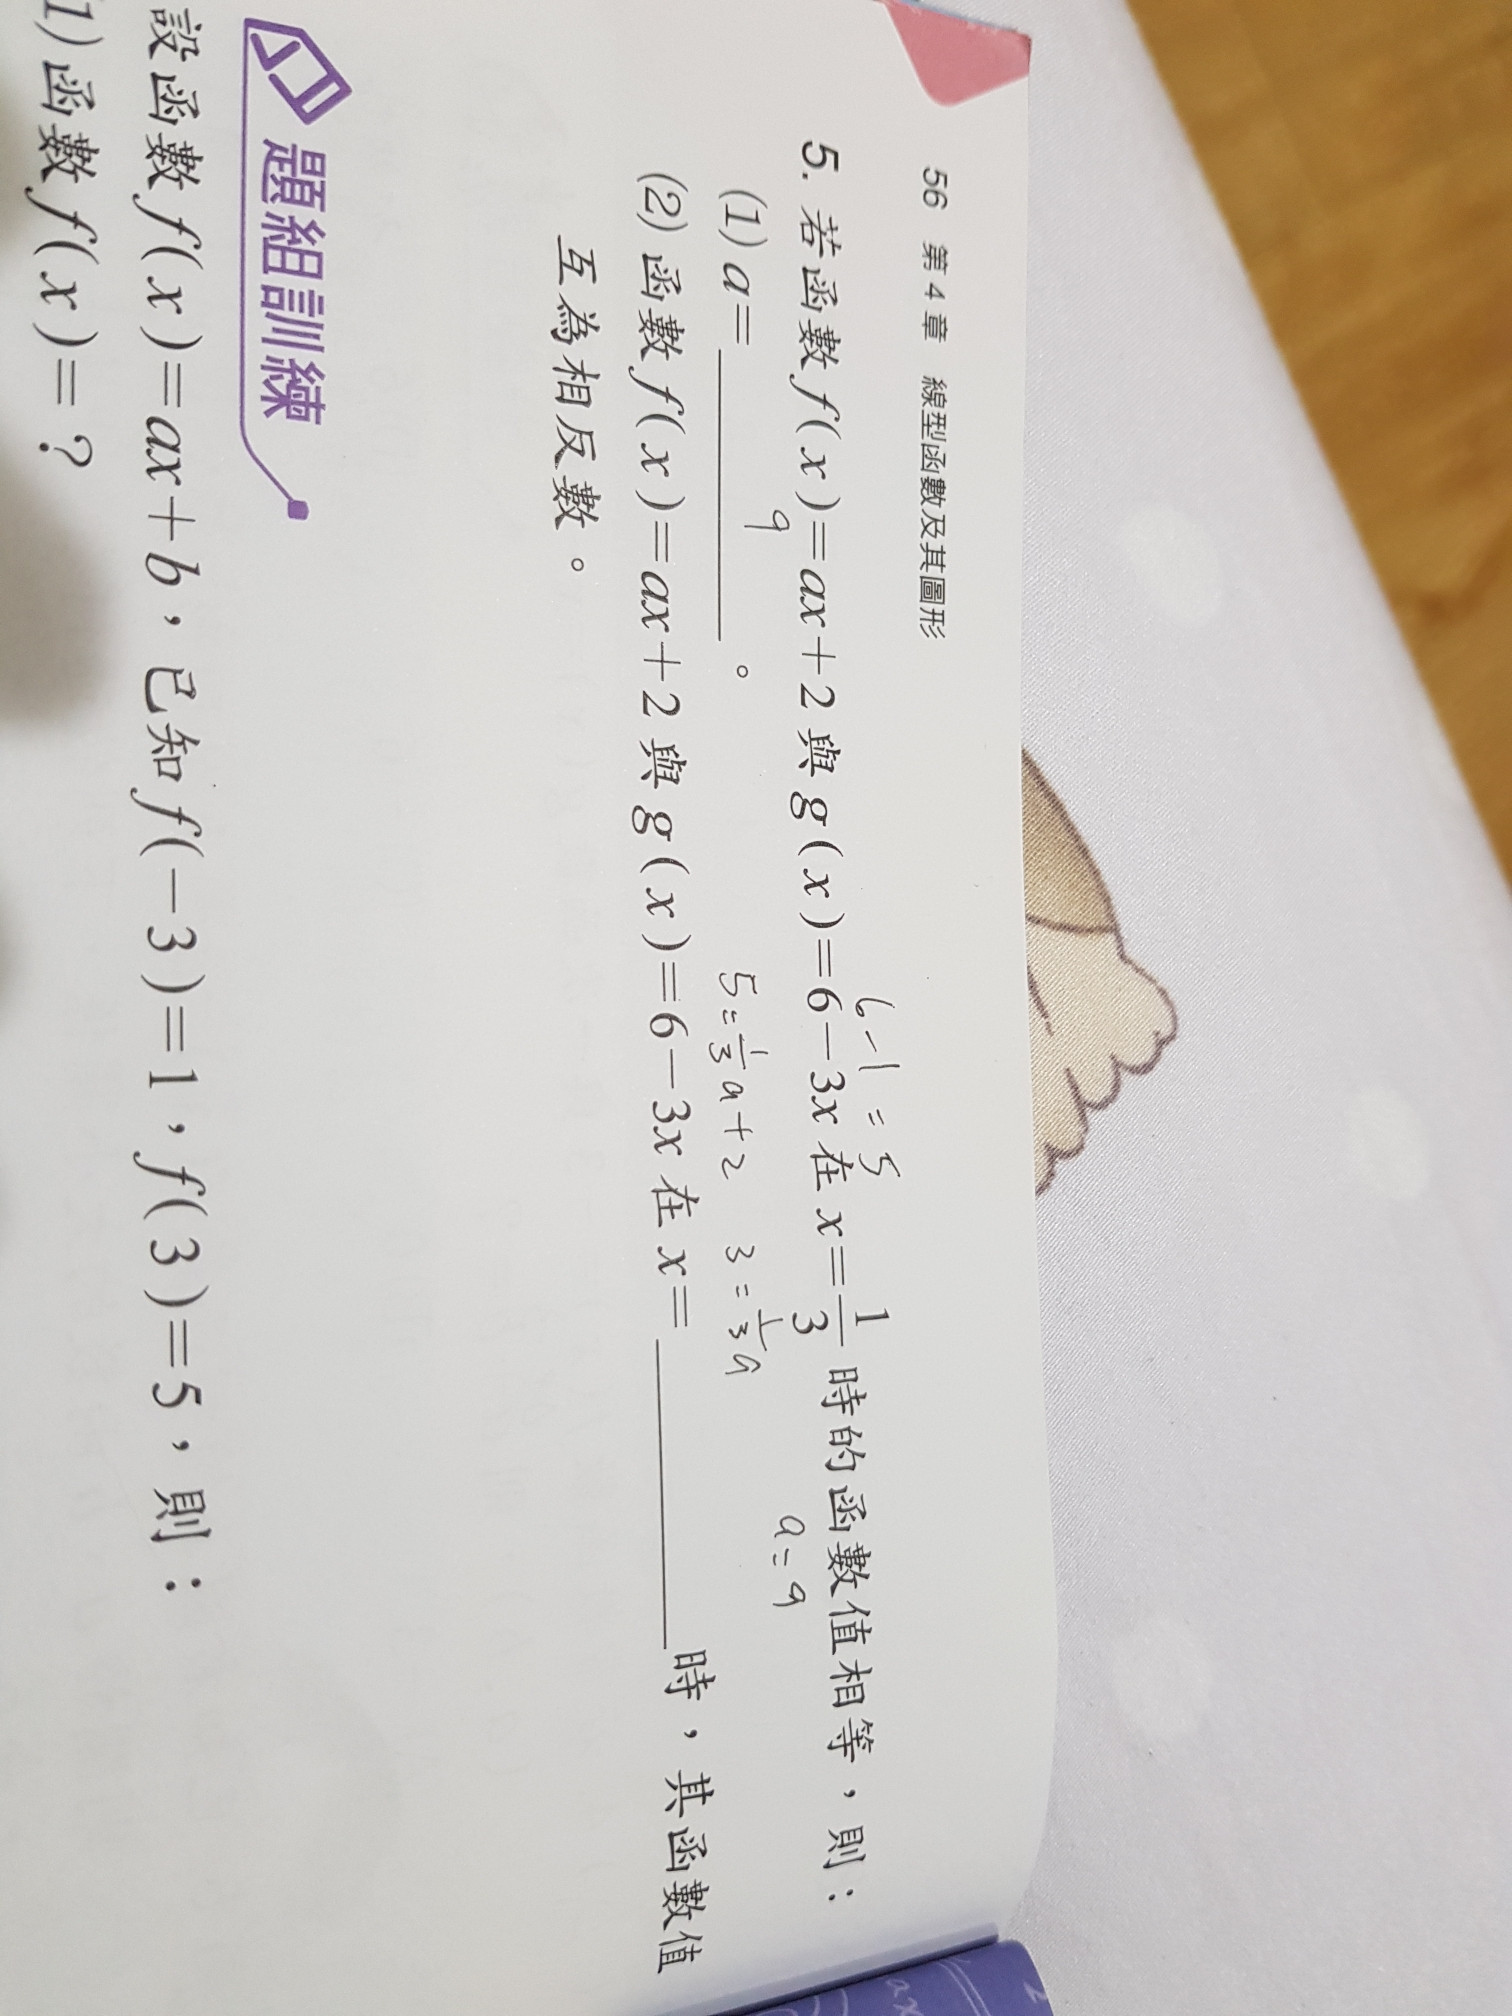 56 第 4 章 線型函數及其圖形
6-1=5
5. 若函數 f(x)=ax+2 與 g(x)=6-3x 在 x=1/3 時的函數值相等，則：
9
a=9
(1) a=________。
5=1/3a+2 3=1/3a
(2) 函數 f(x)=ax+2 與 g(x)=6-3x 在 x=________時，其函數值
互為相反數。
題組訓練
設函數 f(x)=ax+b，已知 f(-3)=1，f(3)=5，則：
1) 函數 f(x)=?
ax